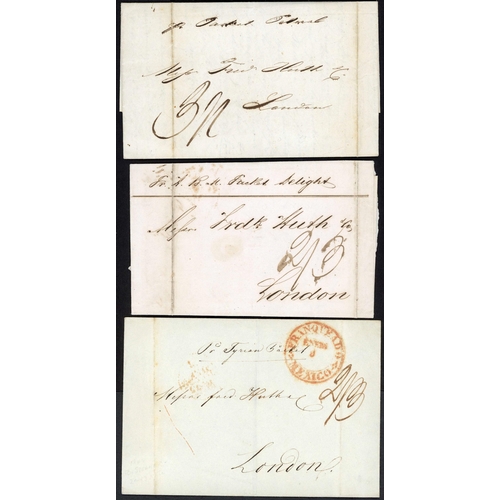 pr Packet Petrel
Messrs Fredk Huth & Co
London
Pr H. B. M. Packet Delight
Messrs Fredk Huth & Co
2/3
London
FRANQUEADO
MEXICO
Pr Tyrian Packet
Messrs Fred Huth & Co
2/3
London